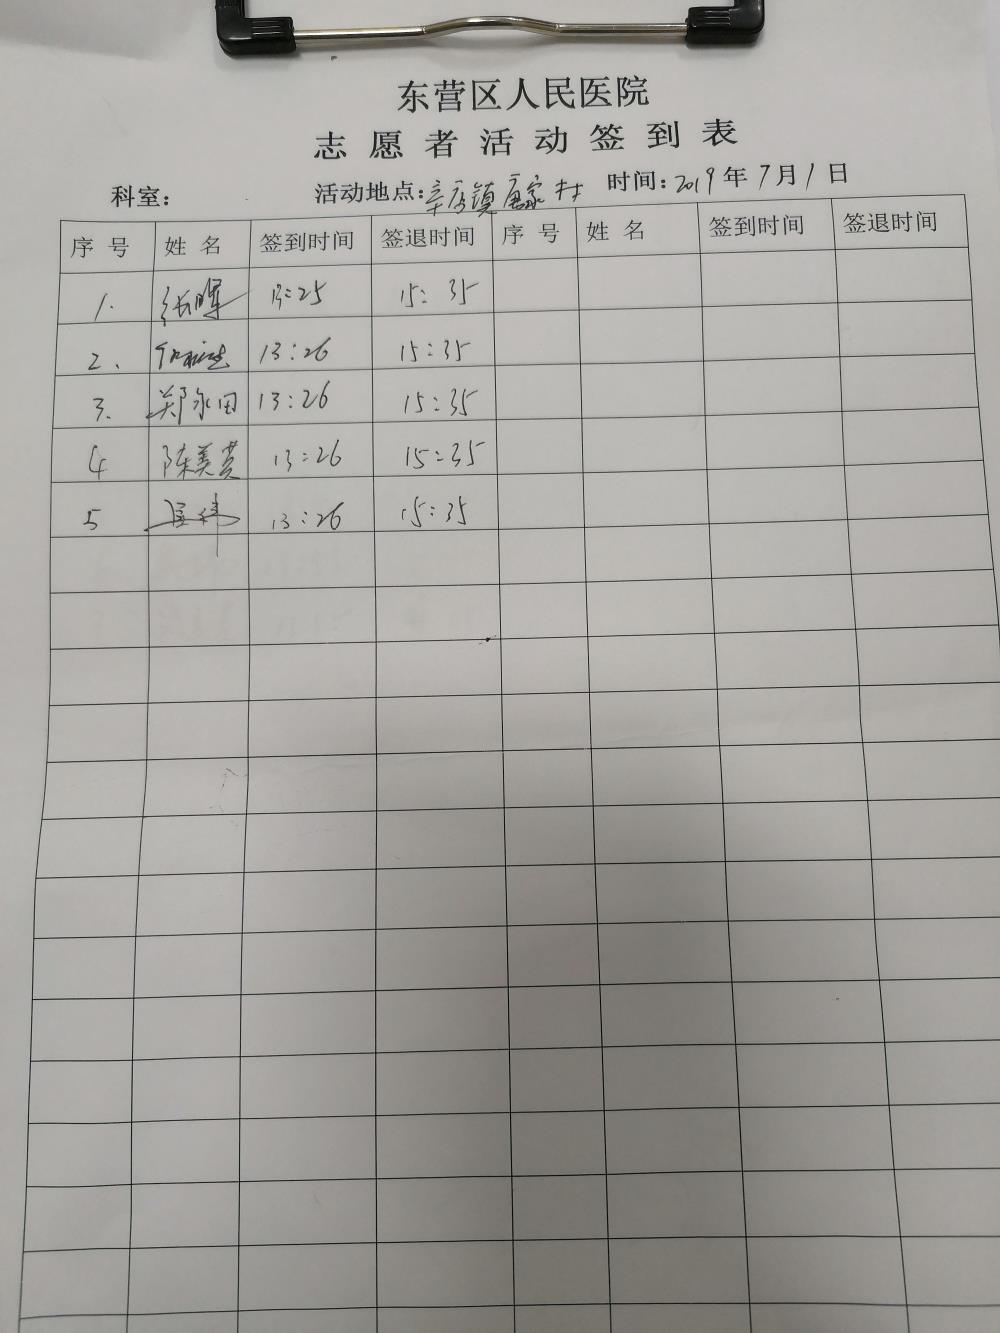 东营区人民医院
志愿者活动签到表
科室： 活动地点：辛店镇唐家村 时间：2019年7月1日
序号 姓名 签到时间 签退时间 序号 姓名 签到时间 签退时间
1. 张晖 13:25 15:35
2. 13:26 15:35
3. 郑永田 13:26 15:35
4 陈美芸 13:26 15:35
5 13:26 15:35